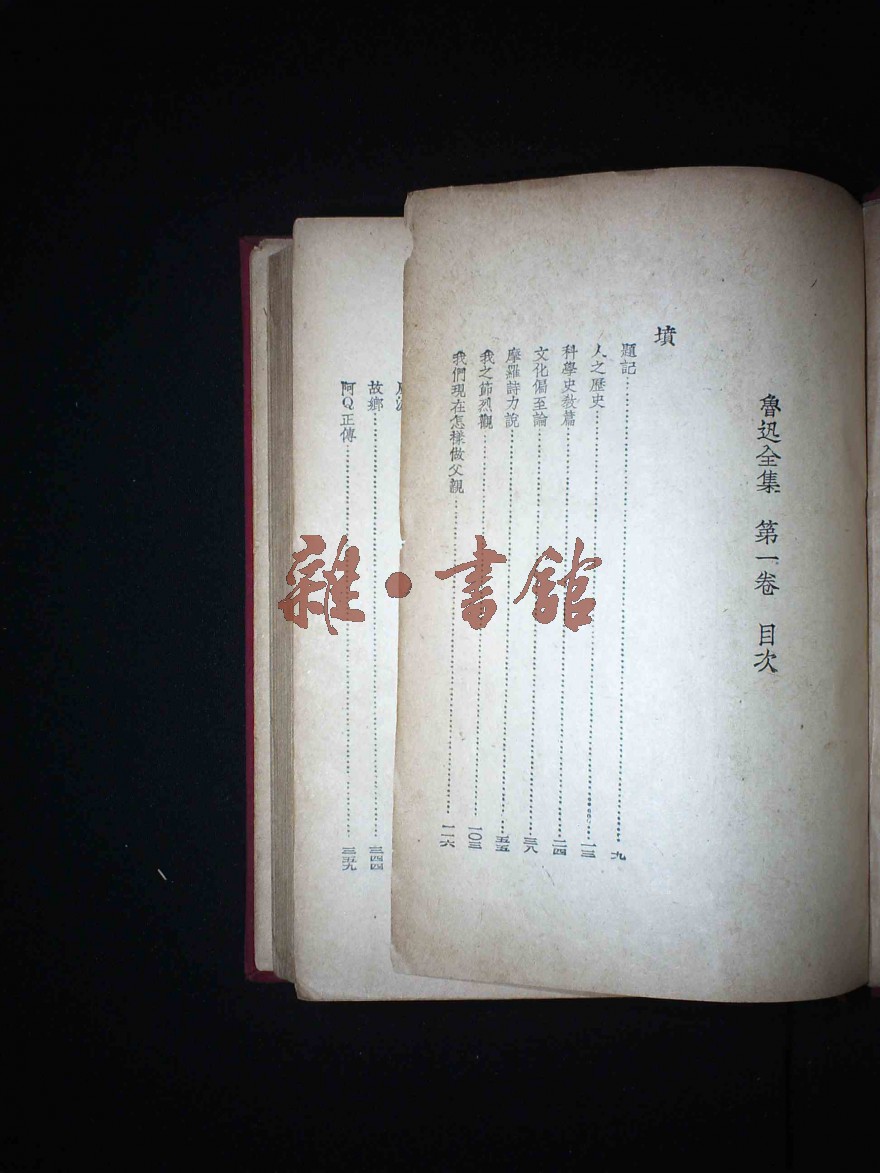 魯迅全集　第一卷　目次
墳
題記……九
人之歷史……一三
科學史教篇……二四
文化偏至論……三八
摩羅詩力說……五五
我之節烈觀……一〇三
我們現在怎樣做父親……一一六
故鄉……三四四
阿Q正傳……三五九
雜·書館